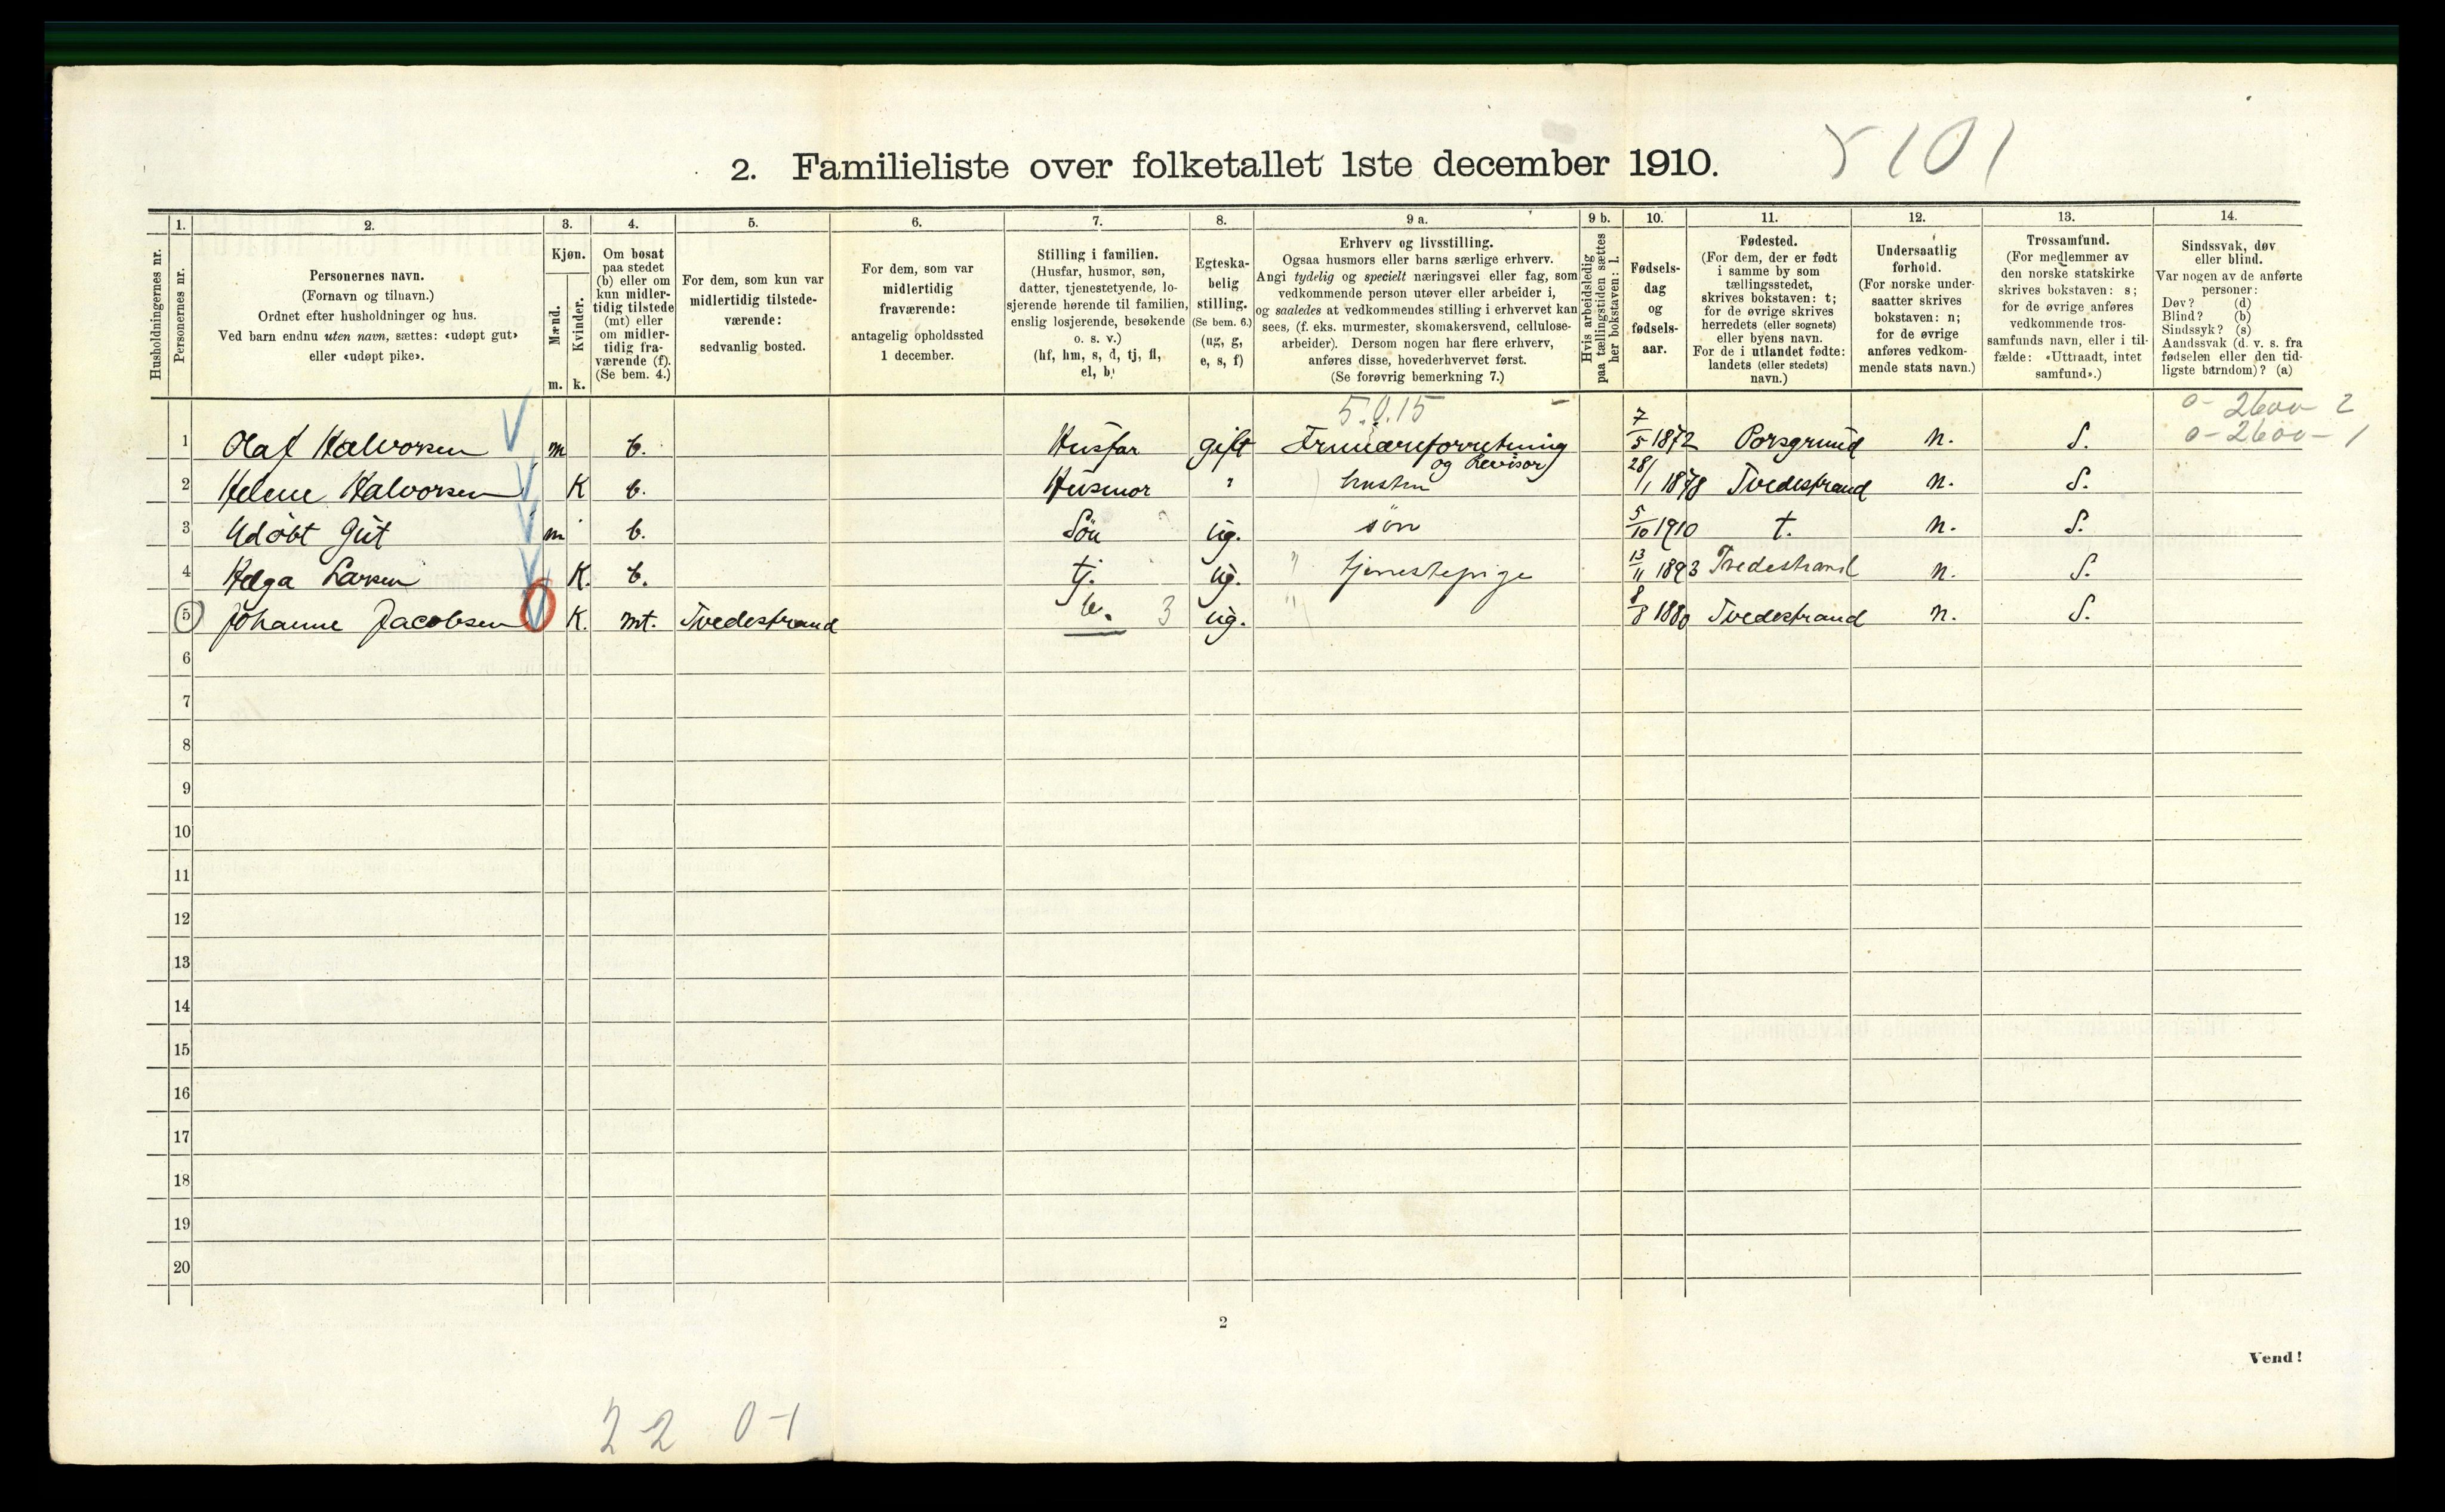 5101
2. Familieliste over folketallet 1ste december 1910.
1. 2. 3. 4. 5. 6. 7. 8. 9 a. 9 b. 10. 11. 12. 13. 14.
Husholdningernes nr.
Personernes nr.
Personernes navn.
(Fornavn og tilnavn.)
Ordnet efter husholdninger og hus.
Ved barn endnu uten navn, sættes: «udøpt gut»
eller «udøpt pike».
Kjøn.
Mænd.
Kvinder.
m. k.
Om bosat
paa stedet
(b) eller om
kun midler-
tidig tilstede
(mt) eller
om midler-
tidig fra-
værende (f).
(Se bem. 4.)
For dem, som kun var
midlertidig tilstede-
værende:
sedvanlig bosted.
For dem, som var
midlertidig
fraværende:
antagelig opholdssted
1 december.
Stilling i familien.
(Husfar, husmor, søn,
datter, tjenestetyende, lo-
sjerende hørende til familien,
enslig losjerende, besøkende
o. s. v.)
(hf, hm, s, d, tj, fl,
el, b)
Egteska-
belig
stilling.
(Se bem. 6.)
(ug, g,
e, s, f)
Erhverv og livsstilling.
Ogsaa husmors eller barns særlige erhverv.
Angi tydelig og specielt næringsvei eller fag, som
vedkommende person utøver eller arbeider i,
og saaledes at vedkommendes stilling i erhvervet kan
sees, (f. eks. murmester, skomakersvend, cellulose-
arbeider). Dersom nogen har flere erhverv,
anføres disse, hovederhvervet først.
(Se forøvrig bemerkning 7.)
Hvis arbeidsledig
paa tællingstiden sættes
her bokstaven: l.
Fødsels-
dag
og
fødsels-
aar.
Fødested.
(For dem, der er født
i samme by som
tællingsstedet,
skrives bokstaven: t;
for de øvrige skrives
herredets (eller sognets)
eller byens navn.
For de i utlandet fødte:
landets (eller stedets)
navn.)
Undersaatlig
forhold.
(For norske under-
saatter skrives
bokstaven: n;
for de øvrige
anføres vedkom-
mende stats navn.)
Trossamfund.
(For medlemmer av
den norske statskirke
skrives bokstaven: s;
for de øvrige anføres
vedkommende tros-
samfunds navn, eller i til-
fælde: «Uttraadt, intet
samfund».)
Sindssvak, døv
eller blind.
Var nogen av de anførte
personer:
Døv? (d)
Blind? (b)
Sindssyk? (s)
Aandssvak (d. v. s. fra
fødselen eller den tid-
ligste barndom)? (a)
5.0.15 0-2600-2
1 Olaf Halvorsen m b. Husfar gift Trælastforretning 7/5 1872 Porsgrund n. S. 0-2600-1
og Revisor
2 Helene Halvorsen K b. Husmor " hustru 28/1 1878 Tvedestrand n. S.
3 Udøbt Gut m b. Søn ug. søn 5/10 1910 t. n. S.
4 Helga Larsen K. b. tj. ug. " tjenestepige 13/11 1893 Tvedestrand n. S.
5 Johanne Jacobsen K. mt. Tvedestrand b. 3 ug. " 8/8 1880 Tvedestrand n. S.
6
7
8
9
10
11
12
13
14
15
16
17
18
19
20
2
Vend!
2-2 0-1